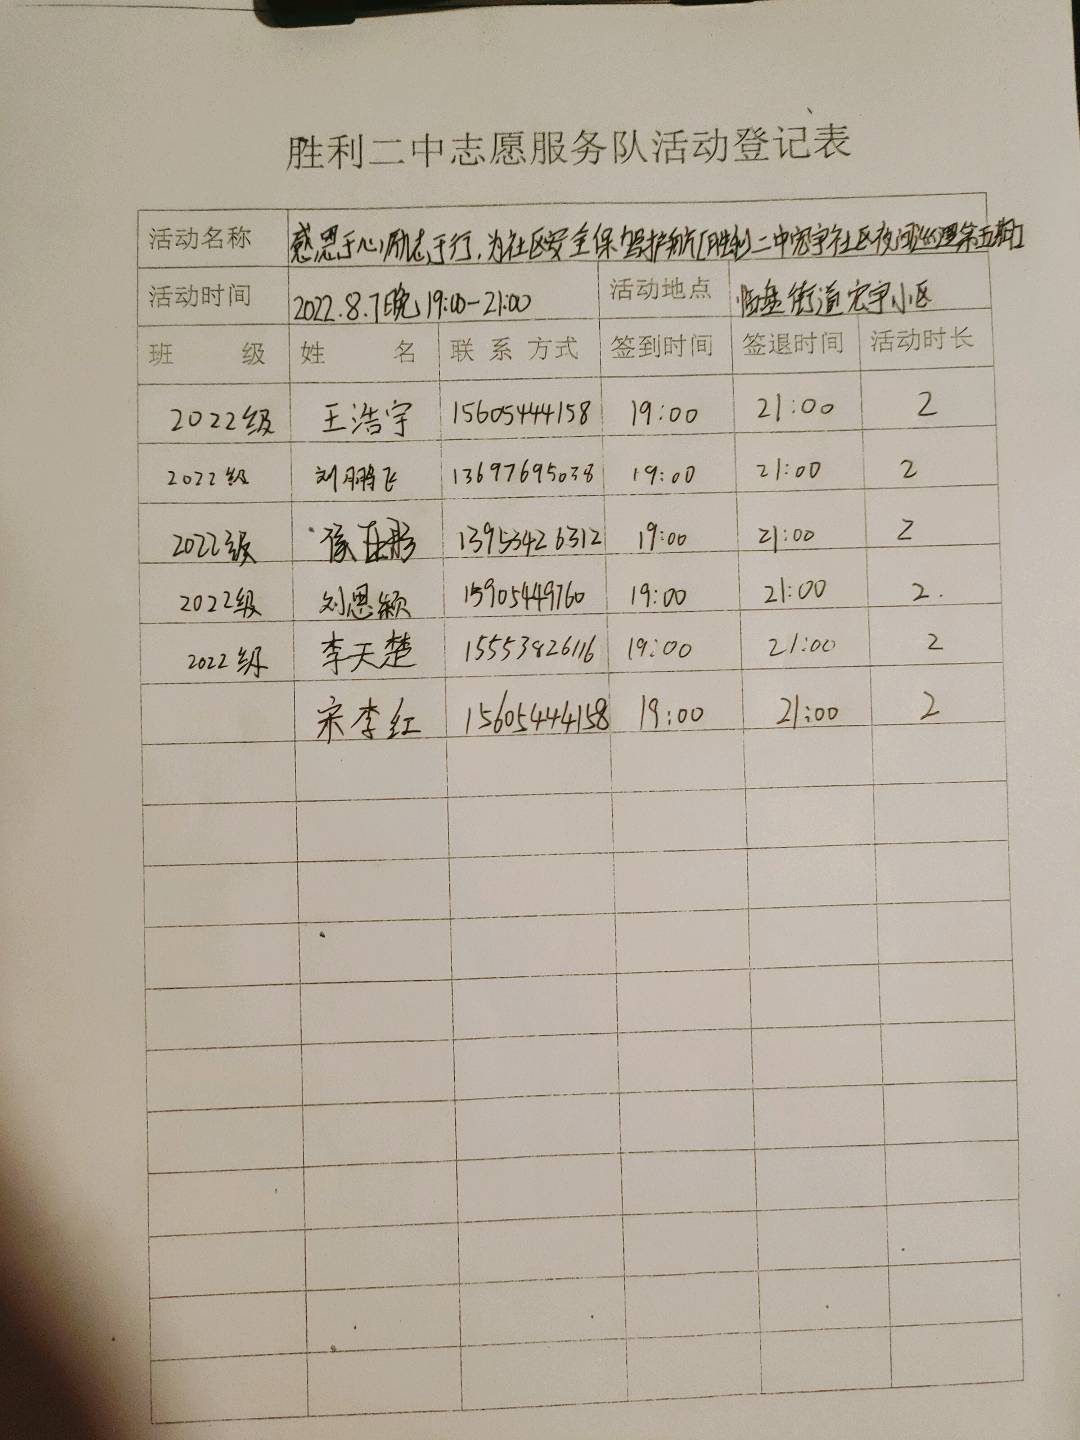 胜利二中志愿服务队活动登记表
活动名称 感恩于心,励志于行,为社区安全保驾护航[胜利二中宏宇社区夜间巡逻第五期]
活动时间 2022.8.7晚19:00-21:00 活动地点 临盘街道宏宇小区
班 级 姓 名 联系方式 签到时间 签退时间 活动时长
2022级 王浩宇 15605444158 19:00 21:00 2
2022级 刘鹏飞 13697695038 19:00 21:00 2
2022级 13953426312 19:00 21:00 2
2022级 刘思颖 15905449760 19:00 21:00 2.
2022级 李天楚 15553826116 19:00 21:00 2
宋李红 15605444158 19:00 21:00 2